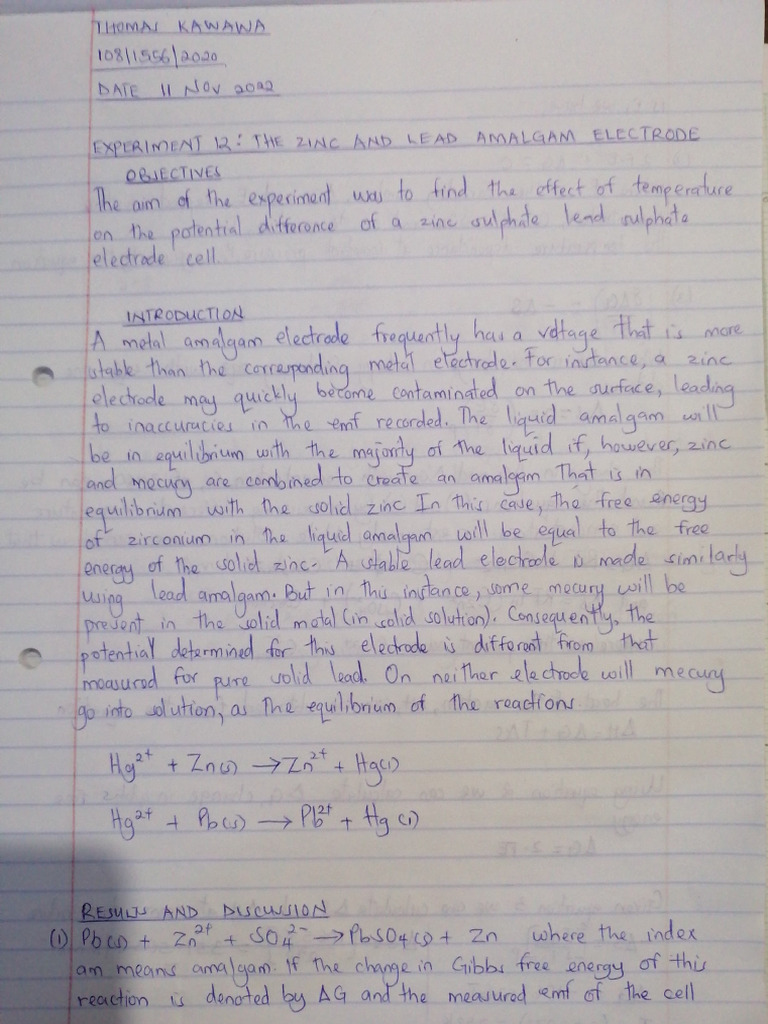 THOMAS KAWAWA
108/1556/2020
DATE 11 NOV 2022
EXPERIMENT 12: THE ZINC AND LEAD AMALGAM ELECTRODE
OBJECTIVES
The aim of the experiment was to find the effect of temperature
on the potential difference of a zinc sulphate lead sulphate
electrode cell.
INTRODUCTION
A metal amalgam electrode frequently has a voltage that is more
stable than the corresponding metal electrode. For instance, a zinc
electrode may quickly become contaminated on the surface, leading
to inaccuracies in the emf recorded. The liquid amalgam will
be in equilibrium with the majority of the liquid if, however, zinc
and mecury are combined to create an amalgam That is in
equilibrium with the solid zinc In this case, the free energy
of zirconium in the liquid amalgam will be equal to the free
energy of the solid zinc. A stable lead electrode is made similarly
using lead amalgam. But in this instance, some mecury will be
present in the solid metal (in solid solution). Consequently, the
potential determined for this electrode is different from that
measured for pure solid lead. On neither electrode will mecury
go into solution, as the equilibrium of the reactions
Hg²⁺ + Zn(s) → Zn²⁺ + Hg(l)
Hg²⁺ + Pb(s) → Pb²⁺ + Hg (l)
RESULTS AND DISCUSSION
(1) Pb(s) + Zn²⁺ + SO₄²⁻ → PbSO4(s) + Zn where the index
am means amalgam. If the change in Gibbs free energy of this
reaction is denoted by ΔG and the measured emf of the cell